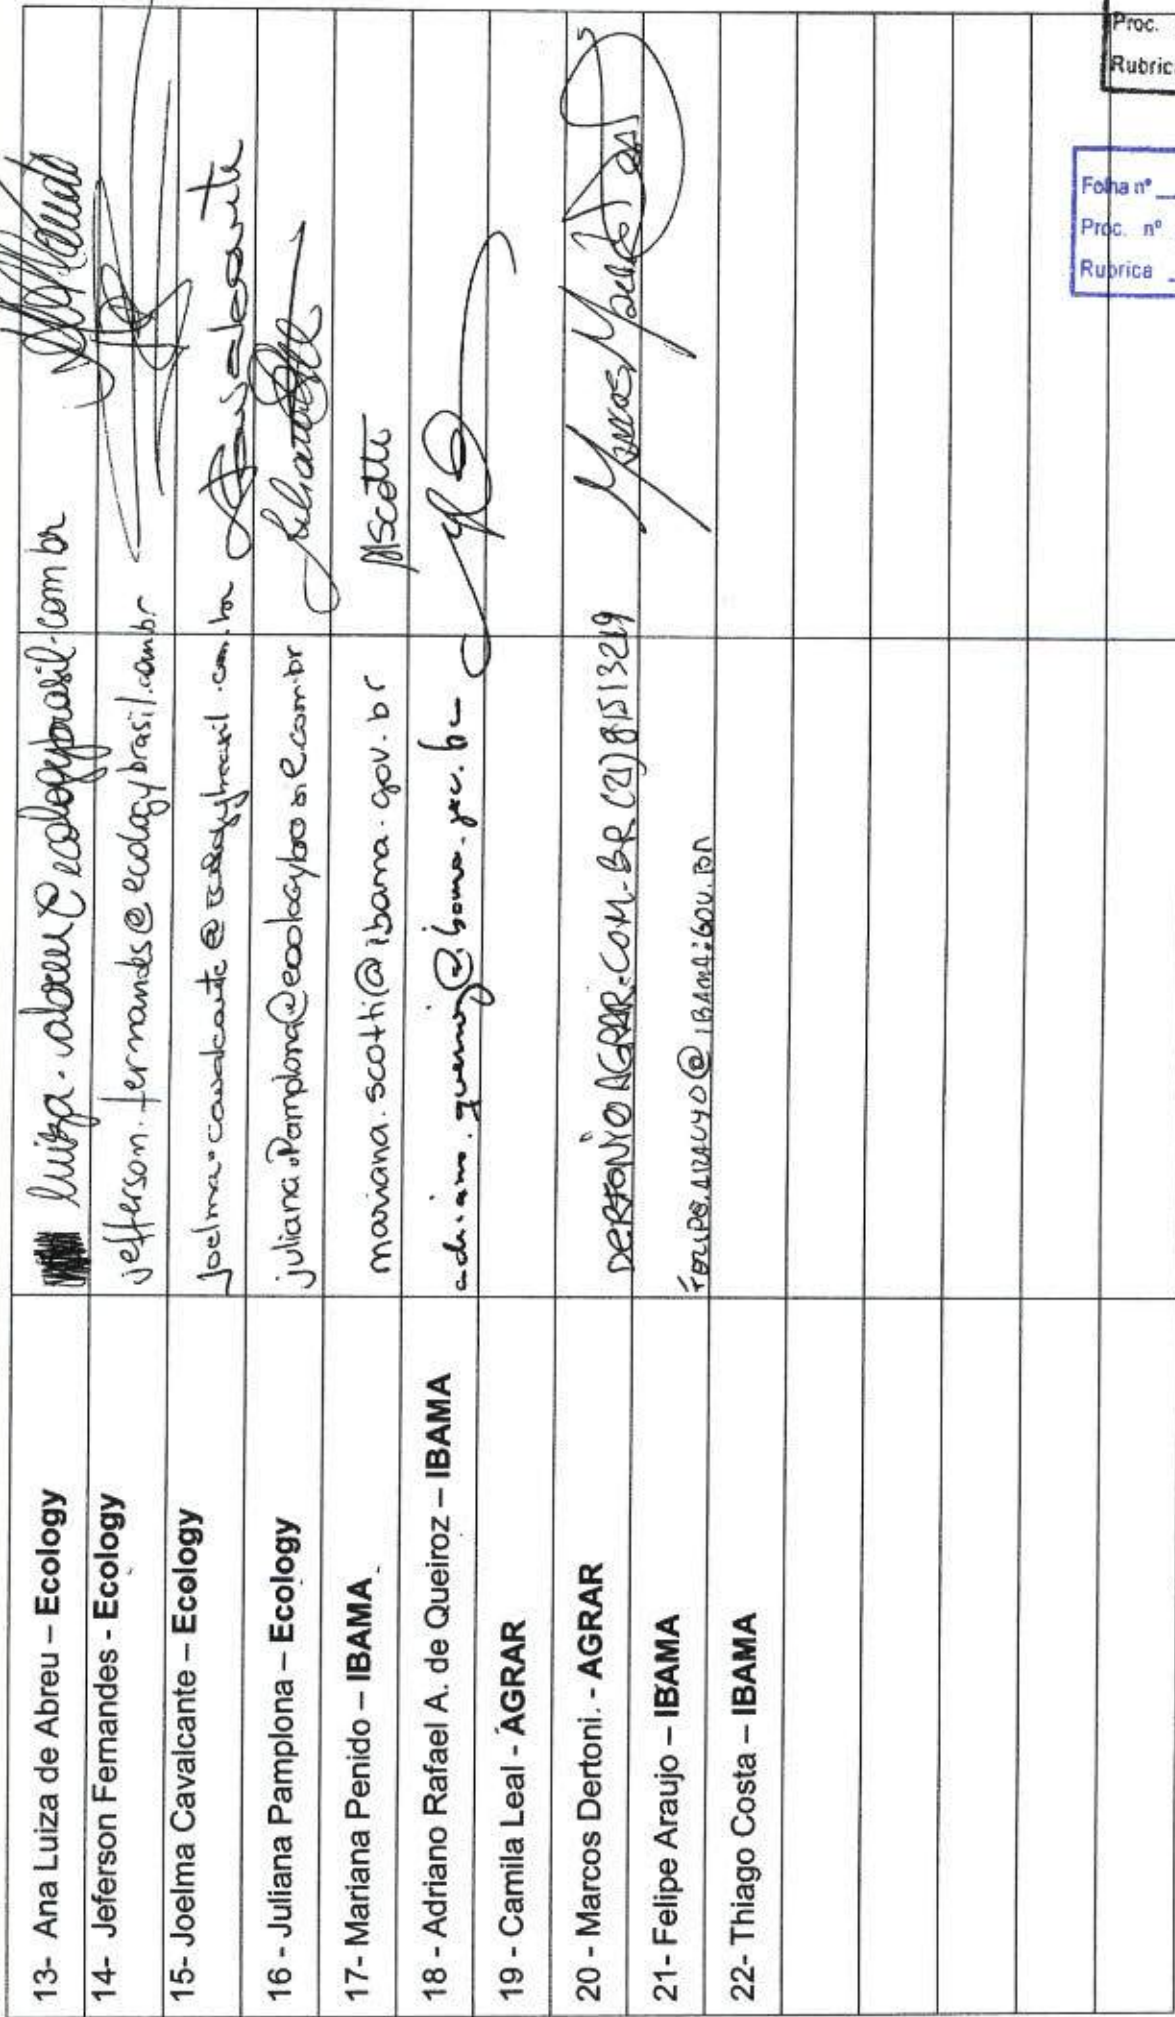 13- Ana Luiza de Abreu – Ecology luiza.abreu@ecologybrasil.com.br
14- Jeferson Fernandes - Ecology jefferson.fernandes@ecologybrasil.com.br
15- Joelma Cavalcante – Ecology joelma.cavalcante@ecologybrasil.com.br Cavalcante
16 - Juliana Pamplona – Ecology juliana.Pamplona@ecologybrasil.com.br
17- Mariana Penido – IBAMA mariana.scotti@ibama.gov.br MScotti
18 - Adriano Rafael A. de Queiroz – IBAMA adriano.queiroz@ibama.gov.br
19 - Camila Leal - AGRAR
20 - Marcos Dertoni. - AGRAR DERTONI@AGRAR.COM.BR (21) 81513219 Marcos
21- Felipe Araujo – IBAMA FELIPE.ARAUJO@IBAMA.GOV.BR
22- Thiago Costa – IBAMA
Proc.
Rubric
Folha nº
Proc. nº
Rubrica